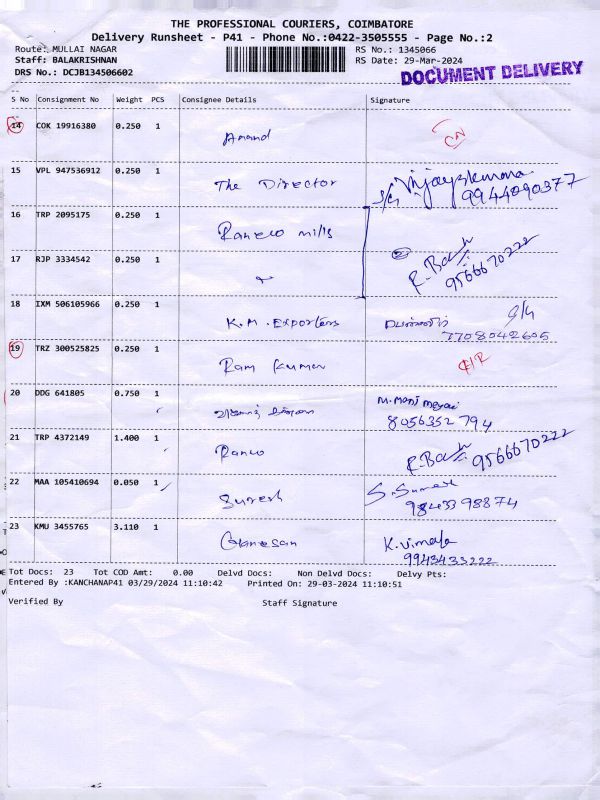 THE PROFESSIONAL COURIERS, COIMBATORE
Delivery Runsheet - P41 - Phone No.:0422-3505555 - Page No.:2
Route: MULLAI NAGAR RS No.: 1345066
Staff: BALAKRISHNAN RS Date: 29-Mar-2024
DRS No.: DCJB134506602 DOCUMENT DELIVERY
S No Consignment No Weight PCS Consignee Details Signature
14 COK 19916380 0.250 1 Anand CN
15 VPL 947536912 0.250 1 The Director 9944090377
16 TRP 2095175 0.250 1 Raneco mills
17 RJP 3334542 0.250 1 R. Bash 9566670222
18 IXM 506105966 0.250 1 K.M. Exporters 7708042605
19 TRZ 300525825 0.250 1 Ram Kumar
20 DDG 641805 0.750 1 8056352794
21 TRP 4372149 1.400 1 Ranco R.Bash 9566670222
22 MAA 105410694 0.050 1 Suresh S. Suresh 9843398874
23 KMU 3455765 3.110 1 Ganesan K. Vimala 9943433222
Tot Docs: 23 Tot COD Amt: 0.00 Delvd Docs: Non Delvd Docs: Delvy Pts:
Entered By :KANCHANAP41 03/29/2024 11:10:42 Printed On: 29-03-2024 11:10:51
Verified By Staff Signature